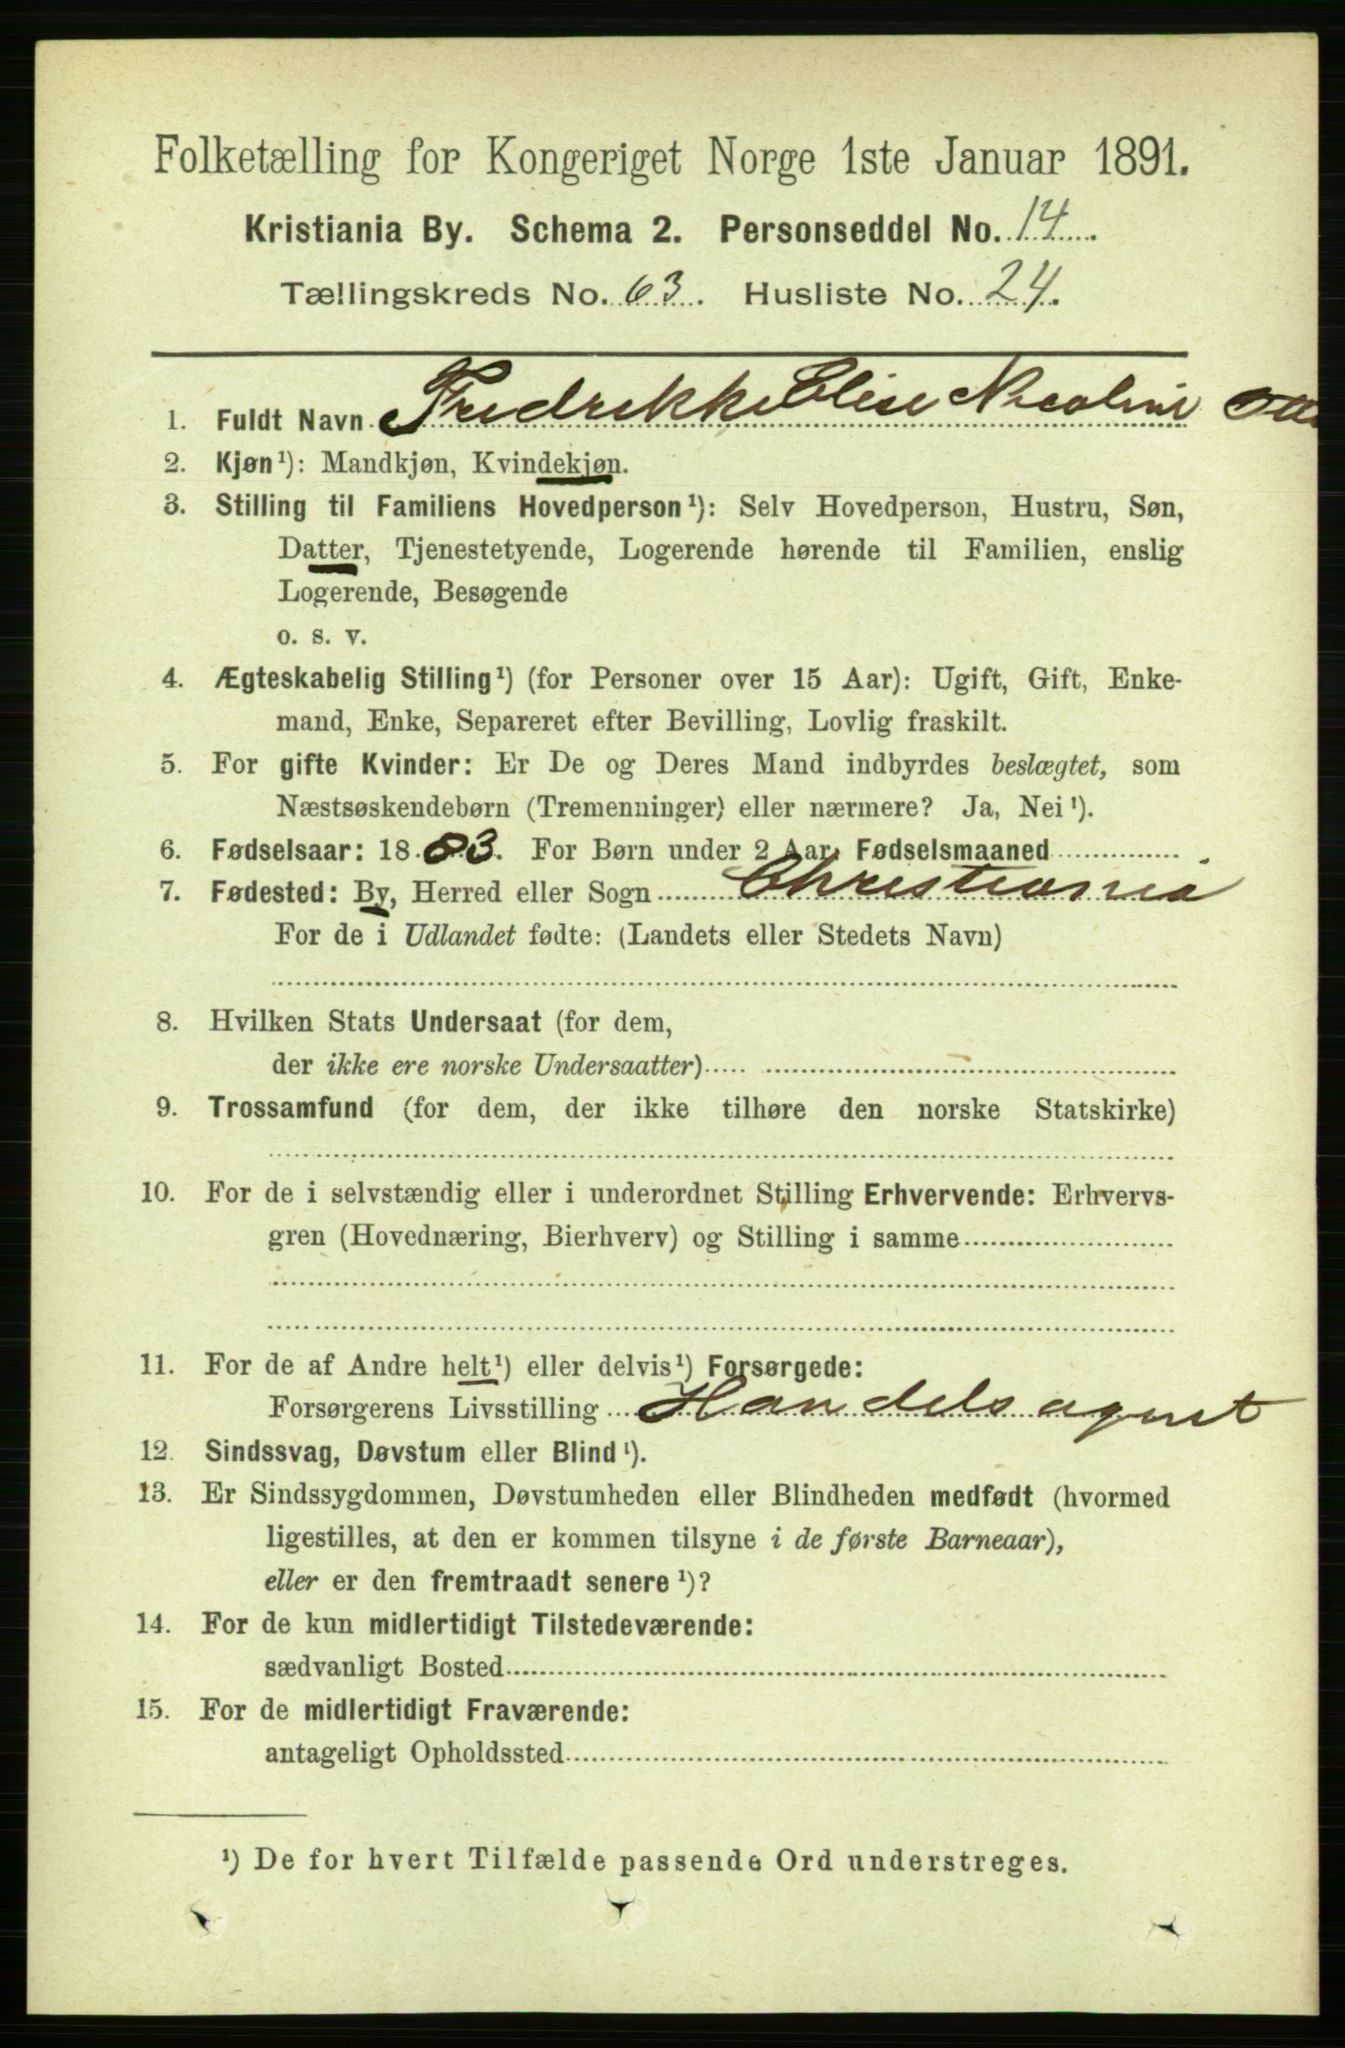 Folketælling for Kongeriget Norge 1ste Januar 1891.
Kristiania By. Schema 2. Personseddel No. 14.
Tællingskreds No. 63. Husliste No. 24.
1. Fuldt Navn Fredrikke Elise Nicoline
2. Kjøn¹): Mandkjøn, Kvindekjøn.
3. Stilling til Familiens Hovedperson¹): Selv Hovedperson, Hustru, Søn,
Datter, Tjenestetyende, Logerende hørende til Familien, enslig
Logerende, Besøgende
o. s. v.
4. Ægteskabelig Stilling¹) (for Personer over 15 Aar): Ugift, Gift, Enke-
mand, Enke, Separeret efter Bevilling, Lovlig fraskilt.
5. For gifte Kvinder: Er De og Deres Mand indbyrdes beslægtet, som
Næstsøskendebørn (Tremenninger) eller nærmere? Ja, Nei¹).
6. Fødselsaar: 1883. For Børn under 2 Aar, Fødselsmaaned
7. Fødested: By, Herred eller Sogn Christiania
For de i Udlandet fødte: (Landets eller Stedets Navn)
8. Hvilken Stats Undersaat (for dem,
der ikke ere norske Undersaatter)
9. Trossamfund (for dem, der ikke tilhøre den norske Statskirke)
10. For de i selvstændig eller i underordnet Stilling Erhvervende: Erhvervs-
gren (Hovednæring, Bierhverv) og Stilling i samme
11. For de af Andre helt¹) eller delvis¹) Forsørgede:
Forsørgerens Livsstilling Handelsagent
12. Sindssvag, Døvstum eller Blind¹).
13. Er Sindssygdommen, Døvstumheden eller Blindheden medfødt (hvormed
ligestilles, at den er kommen tilsyne i de første Barneaar),
eller er den fremtraadt senere¹)?
14. For de kun midlertidigt Tilstedeværende:
sædvanligt Bosted
15. For de midlertidigt Fraværende:
antageligt Opholdssted
¹) De for hvert Tilfælde passende Ord understreges.